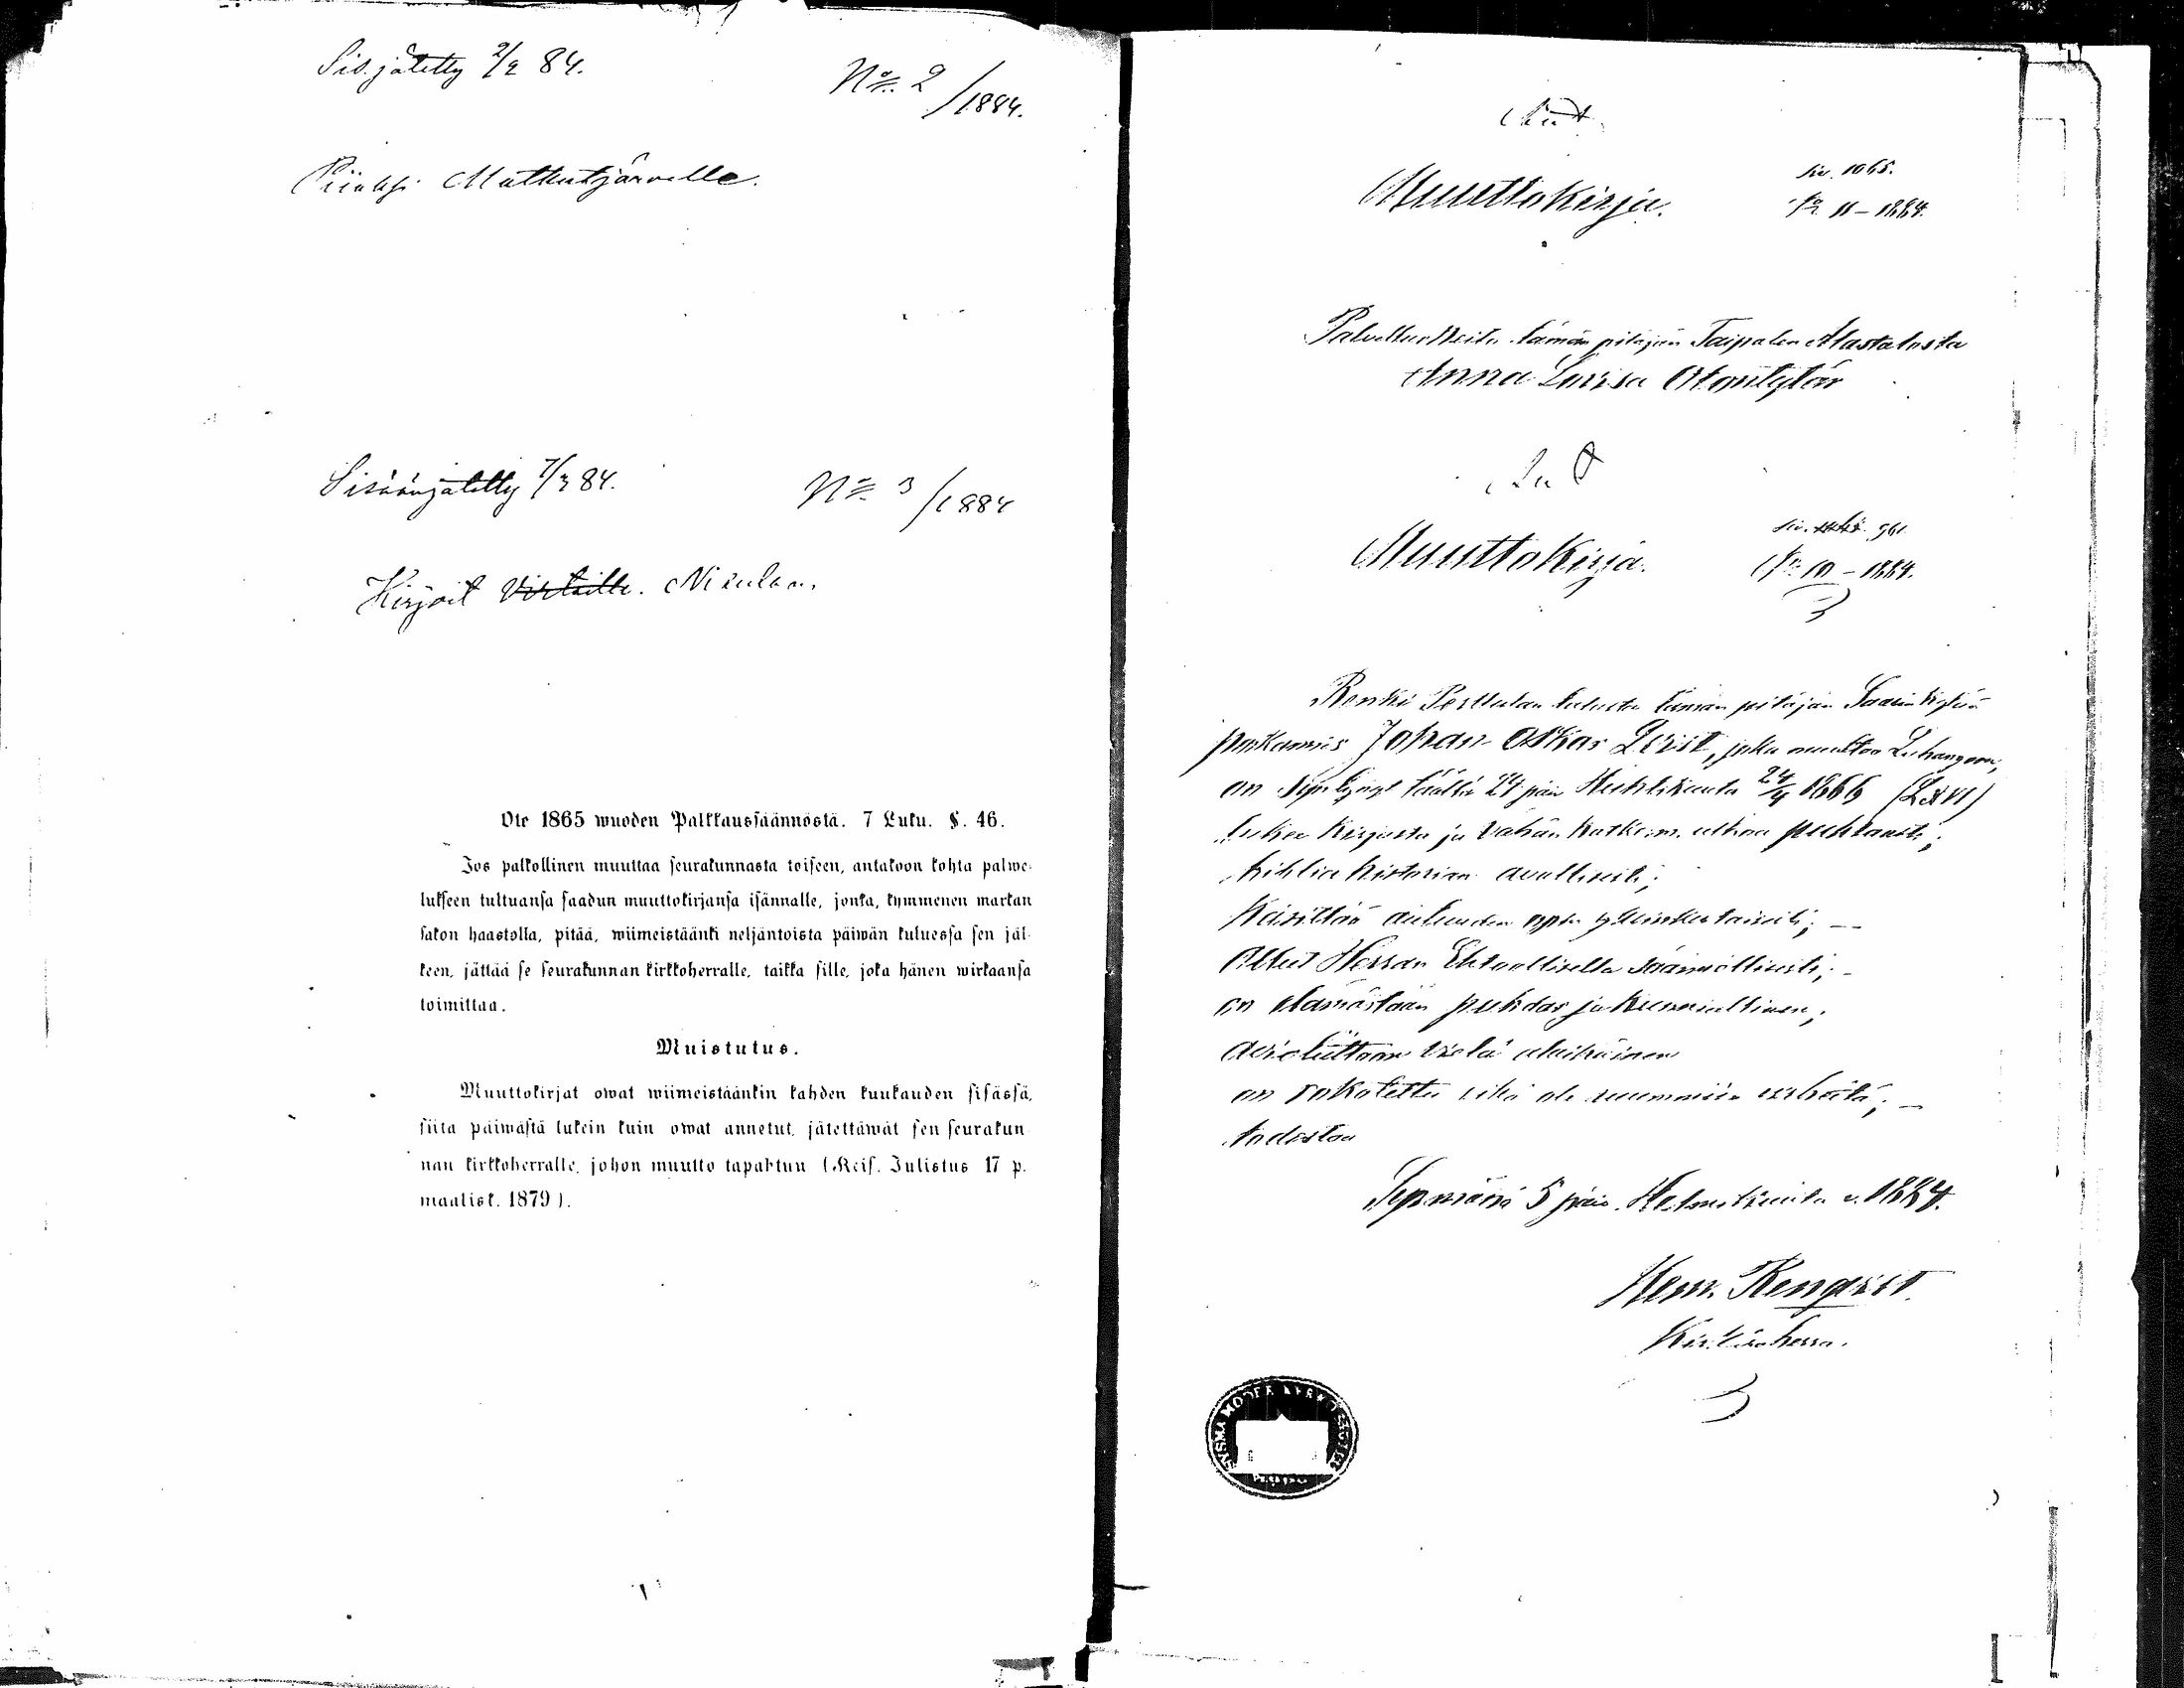 Sis.jätetty 2/2 84.
No 2/1884.
Piiaksi Matkusjärvelle.
Sisäänjätetty 7/3 84.
No 3/1884
Kirjoit Virtaille. Nisulaan.
Ote 1865 wuoden Palkkaussäännöstä. 7 Luku. §. 46.
Jos palkollinen muuttaa seurakunnasta toiseen, antakoon kohta palwe-
lukseen tultuansa saadun muuttokirjansa isännalle, jonka, kymmenen markan
sakon haastolla, pitää, wiimeistäänki neljäntoista päiwän kuluessa sen jäl-
keen, jättää se seurakunnan kirkkoherralle, taikka sille, joka hänen wirkaansa
toimittaa.
Muistutus.
Muuttokirjat owat wiimeistäänkin kahden kuukauden sisässä,
siita päiwästä lukein kuin owat annetut, jätettäwät sen seurakun
nan kirkkoherralle, johon muutto tapahtuu (Keis. Julistus 17 p.
maalisk. 1879).
Muuttokirja.
Siv. 1065.
No 11 – 1884.
tämän pitäjän Taipalen Alastalosta
Anna Lovisa
Muuttokirja.
siv. 961.
No 10 – 1884.
Renki Perttulan talosta tämän pitäjän
poikamies Johan Oskar, joka muuttaa Luhangaan,
on syntynyt täällä 24 päiv Huhtikuuta 24/4 1866 (LXVI)
lukee kirjasta ja vähän katkism. ulkoa puhtaasti;
biblia historian avullisesti;
Käsittää autuuden opin yksinkertaisesti; —
Ollut Herran Ehtoollisella säännöllisesti; –
on elämästään puhdas ja kunniallinen;
avioliittoon vielä alaikäinen
on rokotettu eikä ole ruumiin virheitä; —
todistaa
Sysmässä 5 päiv. Helmikuuta v. 1884.
Henr. Renqvist
Kirkkoherra.
SYSMÄ MODER